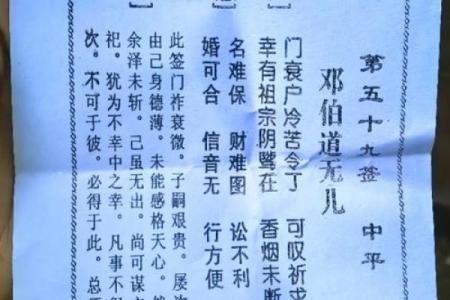 第五十九签 中平
邓伯道无儿
门衰户冷苦令了 可叹祈求
幸有祖宗阴骘在 香烟未断
名难保 财难图 讼不利
婚可合 信音无 行方便
此签门祚衰微。子嗣艰贵。屡
由己身德薄。未能感格天心。
余泽未斩。己虽无出。尚可谋
祀。犹为不幸中之幸。凡事不
次。不可于彼。必得于此。总